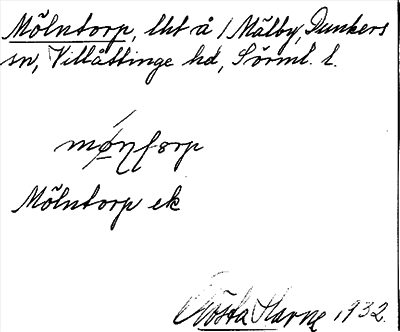 Mölntorp, lht å / Målby, Dunkers
sn, Villåttinge hd, Sörml. l.
Mölntorp ek
Gösta Harne 1932.